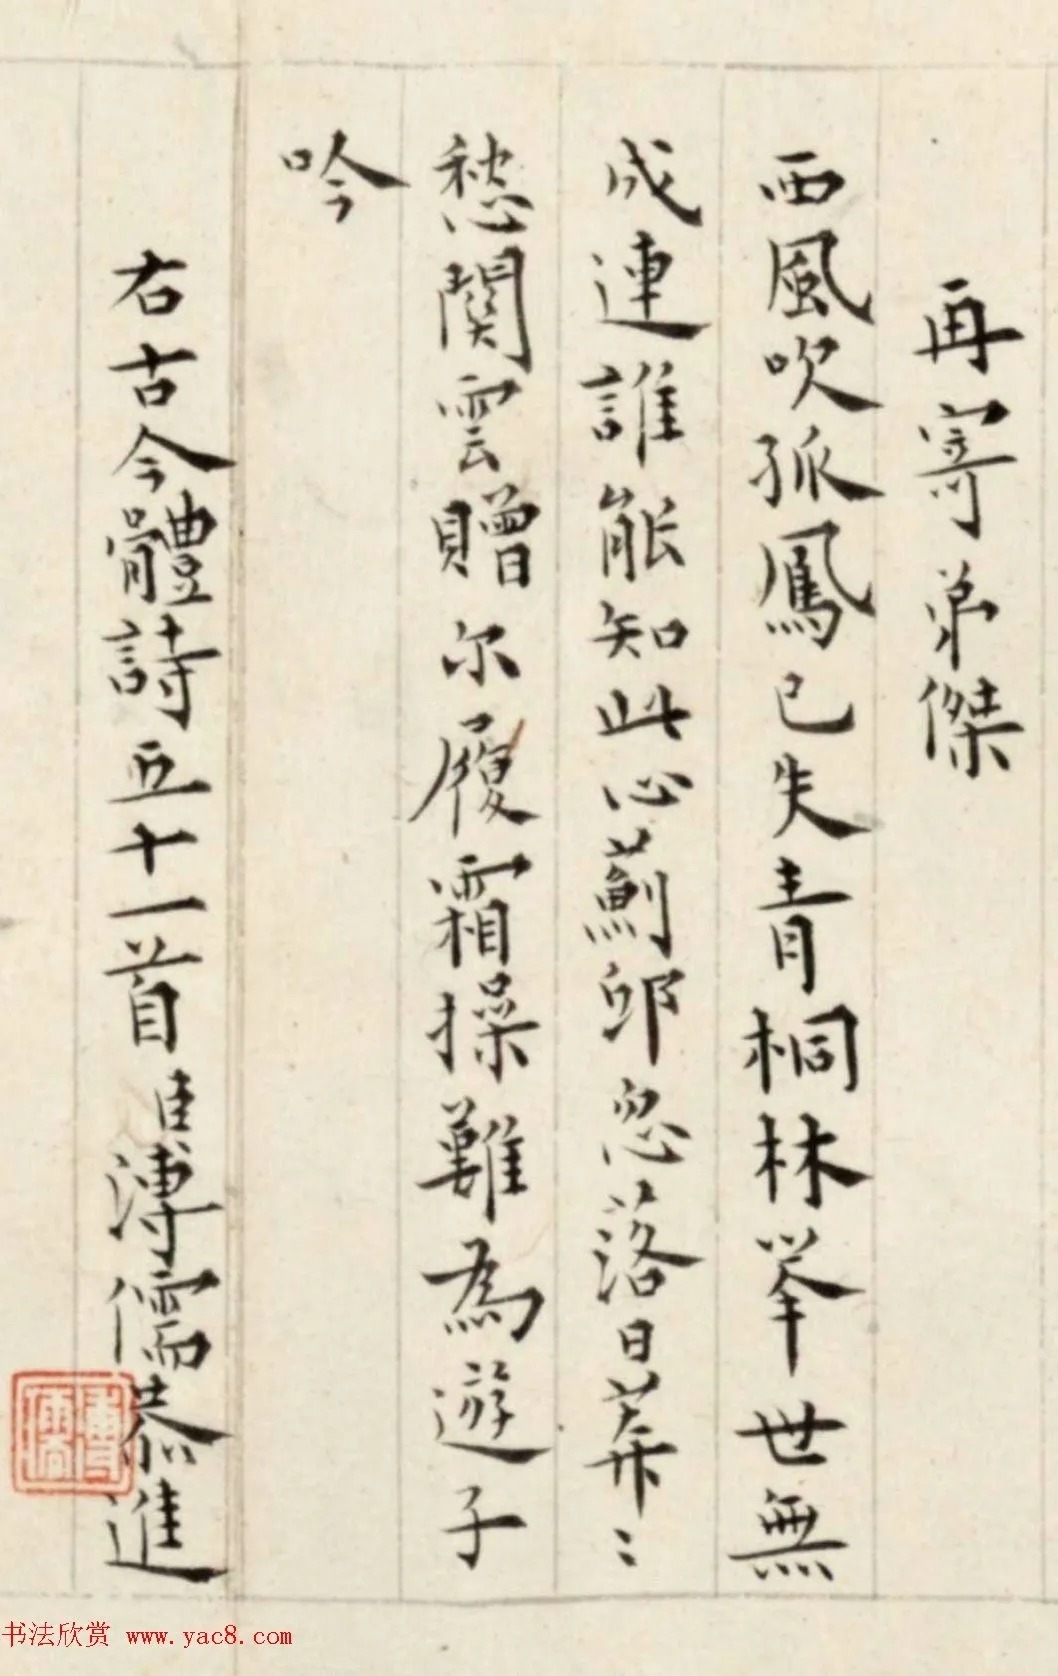 再寄弟傑
西風吹孤鳳已失青桐林舉世無
成連誰能知此心薊邱忽落日莽〻
愁關雲贈尔履霜操難為遊子
吟
右古今體詩五十一首臣溥儒恭進
溥儒
书法欣赏 www.yac8.com